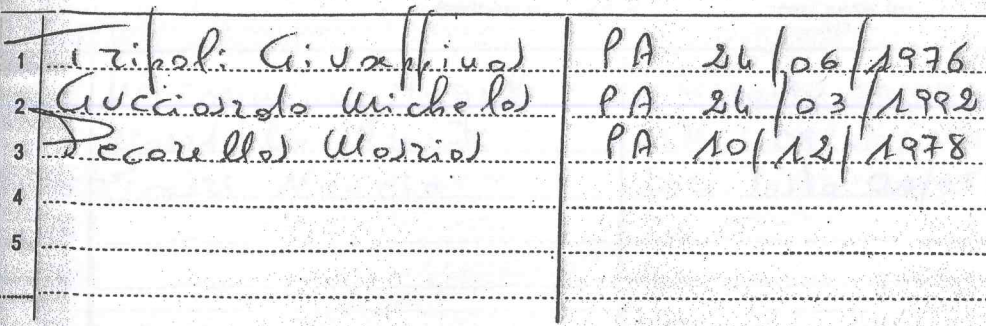 1 Tripoli Giuseppina PA 24/06/1976
2 Gucciardo Michela PA 24/03/1992
3 Pecorella Maria PA 10/12/1978
4
5